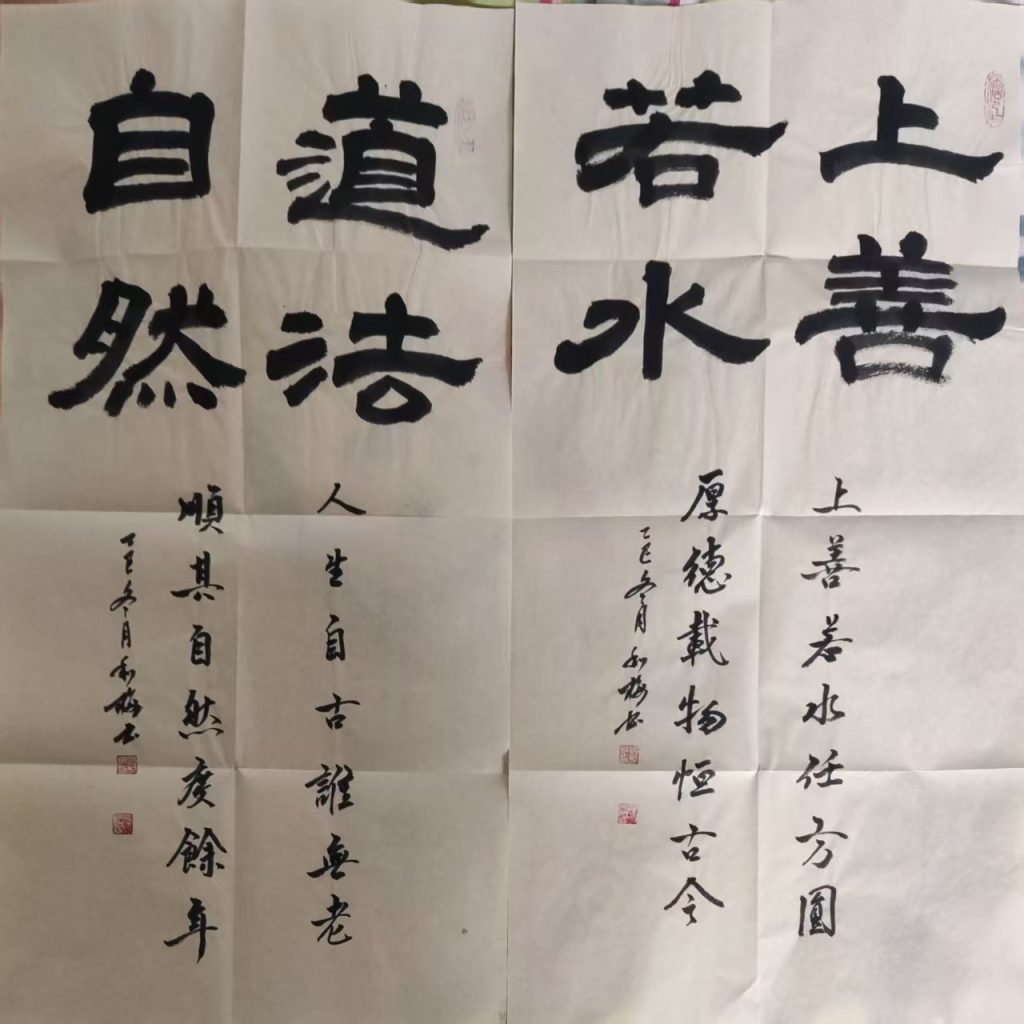 上善
若水
上善若水任方圓
厚德載物恒古今
乙巳冬月梅书
道法
自然
人生自古誰無老
順其自然度餘年
乙巳冬月梅书